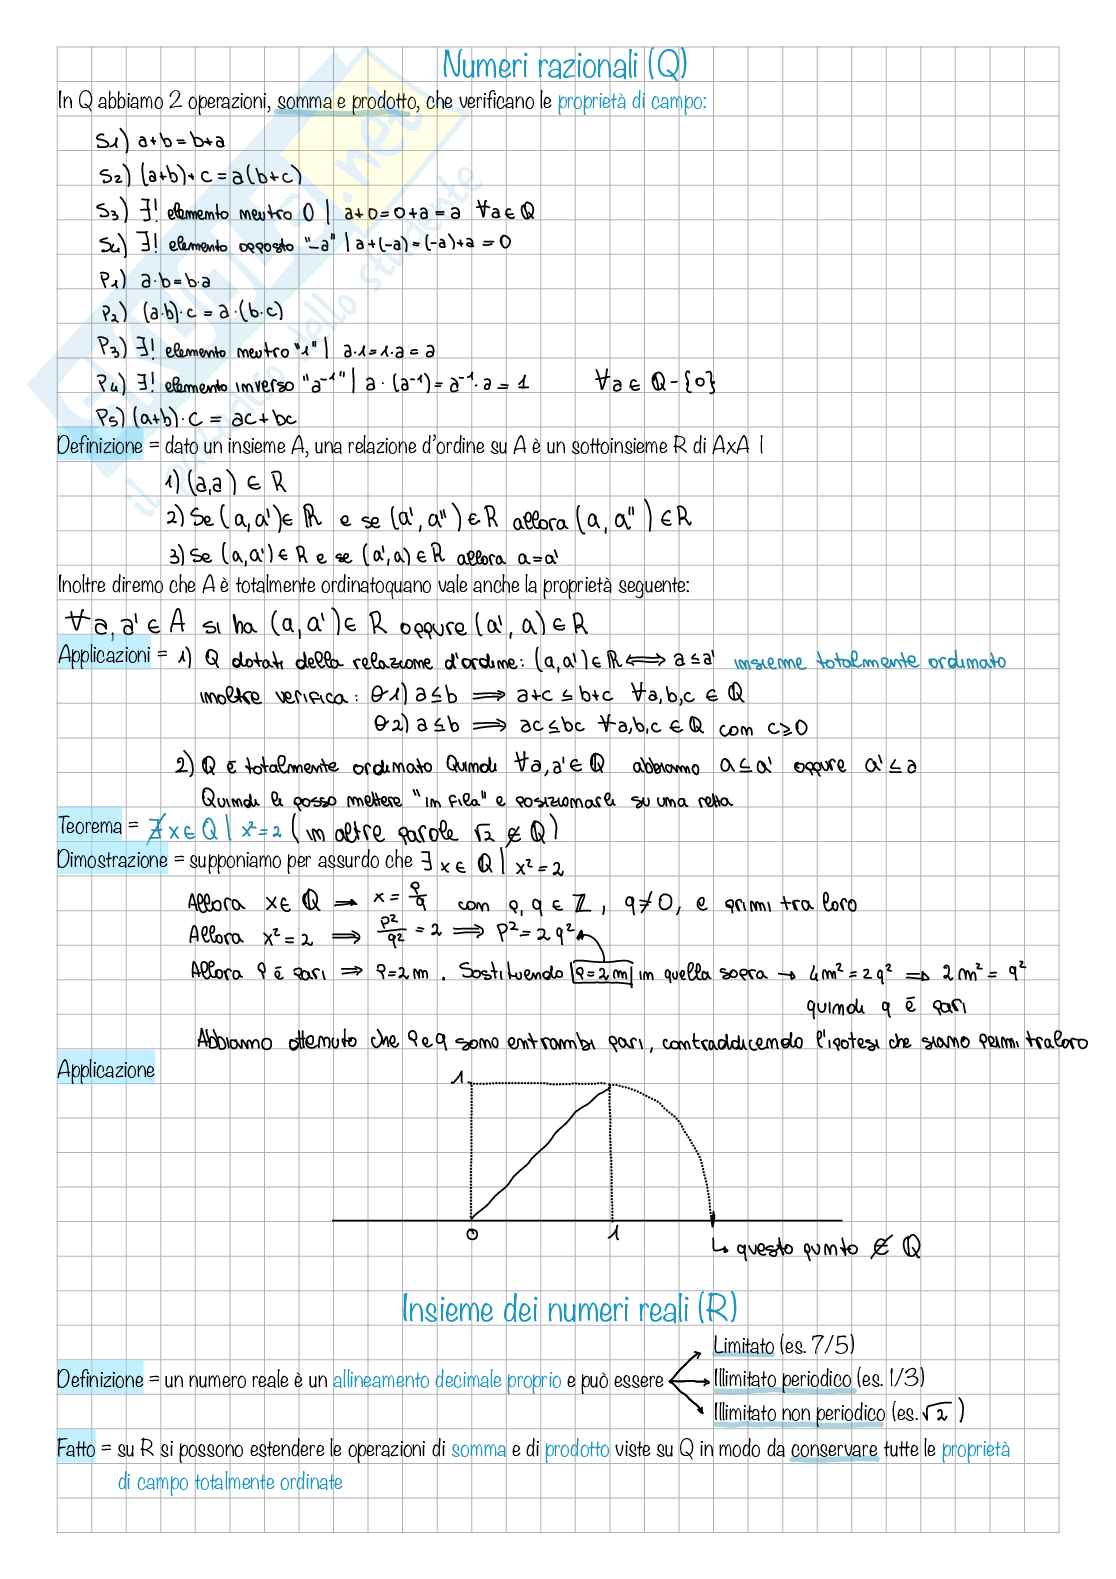 Numeri razionali (Q)
In Q abbiamo 2 operazioni, somma e prodotto, che verificano le proprietà di campo:
S1) a+b = b+a
S2) (a+b)+c = a(b+c)
S3) ∃! elemento neutro 0 | a+0=0+a=a ∀a∈ℚ
S4) ∃! elemento opposto "-a" | a+(-a)=(-a)+a=0
P1) a·b=b·a
P2) (a·b)·c = a·(b·c)
P3) ∃! elemento neutro "1" | a·1=1·a=a
P4) ∃! elemento inverso "a⁻¹" | a·(a⁻¹)=a⁻¹·a=1 ∀a∈ℚ-{0}
P5) (a+b)·c = ac+bc
Definizione = dato un insieme A, una relazione d'ordine su A è un sottoinsieme R di AxA |
1) (a,a) ∈ R
2) Se (a,a')∈ R e se (a',a'')∈R allora (a,a'')∈R
3) Se (a,a')∈R e se (a',a)∈R allora a=a'
Inoltre diremo che A è totalmente ordinatoquano vale anche la proprietà seguente:
∀a,a'∈A si ha (a,a')∈R oppure (a',a)∈R
Applicazioni = 1) Q dotati della relazione d'ordine: (a,a')∈R ⟺ a≤a' insieme totalmente ordinato
inoltre verifica: θ1) a≤b ⟹ a+c≤b+c ∀a,b,c ∈ ℚ
θ2) a≤b ⟹ ac≤bc ∀a,b,c∈ℚ com c≥0
2) Q è totalmente ordinato Quindi ∀a,a'∈ℚ abbiamo a≤a' oppure a'≤a
Quindi li posso mettere "in fila" e posizionarli su una retta
Teorema = ∄x∈ℚ | x²=2 (in altre parole √2 ∉ ℚ)
Dimostrazione = supponiamo per assurdo che ∃x∈ℚ | x²=2
Allora x∈ℚ ⟹ x = p/q con p,q∈ℤ, q≠0, e primi tra loro
Allora x²=2 ⟹ p²/q² = 2 ⟹ p²=2q²
Allora p è pari ⟹ p=2m. Sostituendo p=2m in quella sopra → 4m²=2q² ⟹ 2m²=q²
quindi q è pari
Abbiamo ottenuto che p e q sono entrambi pari, contraddicendo l'ipotesi che siano primi tra loro
Applicazione
1
0 1
↳ questo punto ∉ ℚ
Insieme dei numeri reali (R)
Limitato (es. 7/5)
Definizione = un numero reale è un allineamento decimale proprio e può essere
Illimitato periodico (es. 1/3)
Illimitato non periodico (es. √2)
Fatto = su R si possono estendere le operazioni di somma e di prodotto viste su Q in modo da conservare tutte le proprietà
di campo totalmente ordinate